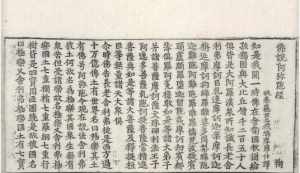 佛說阿彌陀經
姚秦三藏法師鳩摩羅什譯
如是我聞一時佛在舍衛國祇樹給
孤獨園與大比丘僧千二百五十人
俱皆是大阿羅漢衆所知識長老舍
利弗摩訶目乾連摩訶迦葉摩訶迦
栴延摩訶拘絺羅離婆多周利槃陀
迦難陀阿難陀羅睺羅憍梵波提賓
頭盧頗羅墮迦留陀夷摩訶劫賓那
薄俱羅阿㝹樓馱如是等諸大弟子
并諸菩薩摩訶薩文殊師利法王子
阿逸多菩薩乾陀訶提菩薩常精進
菩薩與如是等諸大菩薩及釋提桓
因等無量諸天大衆俱
爾時佛告長老舍利弗從是西方過
十萬億佛土有世界名曰極樂其土
有佛號阿彌陀今現在說法舍利弗
彼土何故名爲極樂其國衆生無有
衆苦但受諸樂故名極樂又舍利弗
極樂國土七重欄楯七重羅網七重行
樹皆是四寶周匝圍繞是故彼國名
曰極樂又舍利弗極樂國土有七寶